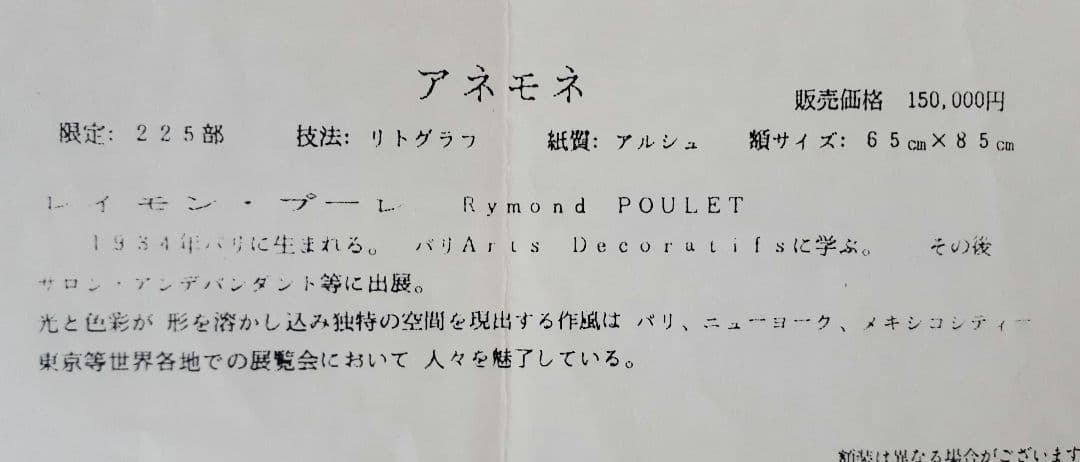 アネモネ
販売価格 150,000円
限定: 225部 技法: リトグラフ 紙質: アルシュ 額サイズ: 65㎝×85㎝
レイモン・プーレ Rymond POULET
1934年パリに生まれる。 パリArts Decoratifsに学ぶ。 その後
サロン・アンデパンダント等に出展。
光と色彩が 形を溶かし込み独特の空間を現出する作風は パリ、ニューヨーク、メキシコシティー
東京等世界各地での展覧会において 人々を魅了している。
額装は異なる場合がございます